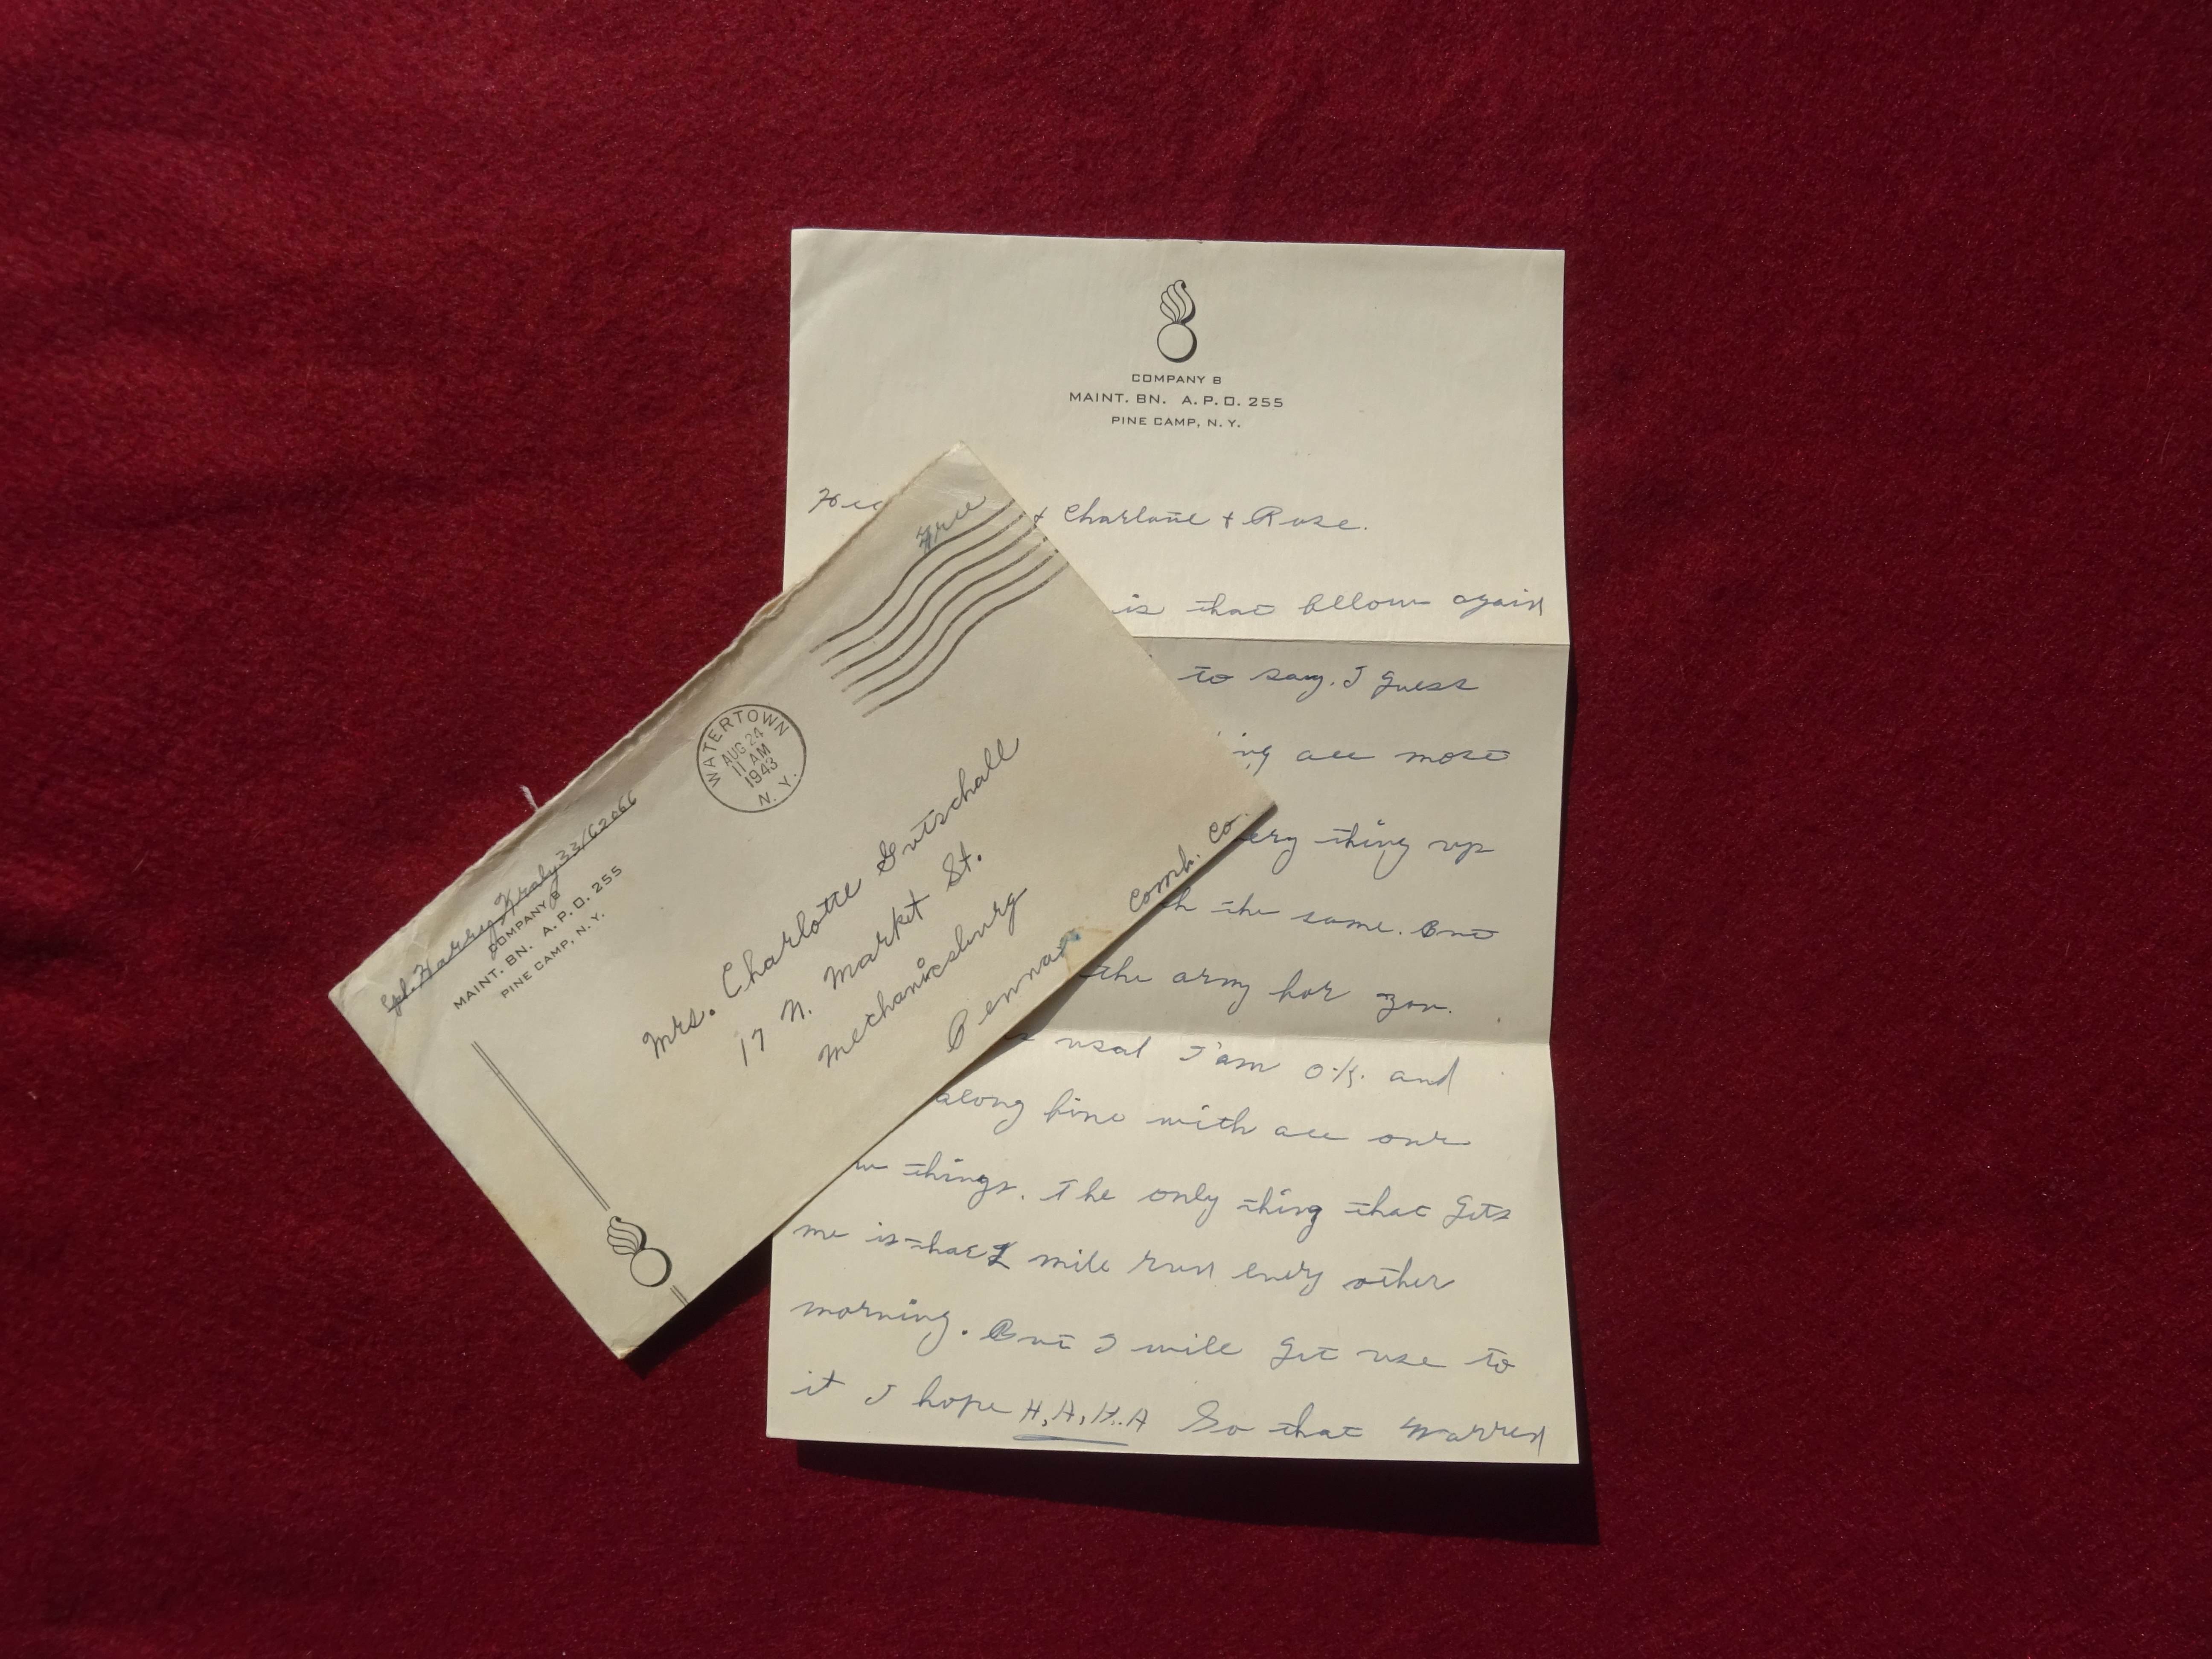 COMPANY B
MAINT. BN. A.P.O. 255
PINE CAMP, N.Y.
& Charlane & Rose.
is that fellow again
to say. I guess
all most
thing up
the same. But
the army for you.
usal I'am O.K. and
along fine with all our
things. The only thing that gets
me is that 2 mile run every other
morning. But I will get use to
it I hope H,A,H.A So that Warren
Free
WATERTOWN
AUG 24
11 AM
1943
N.Y.
Cpl. Harry Kraly
COMPANY B
MAINT. BN. A.P.O. 255
PINE CAMP, N.Y.
Mrs. Charlotte Gutschall
17 N. Market St.
Mechanicsburg
Penna
Comb. Co.